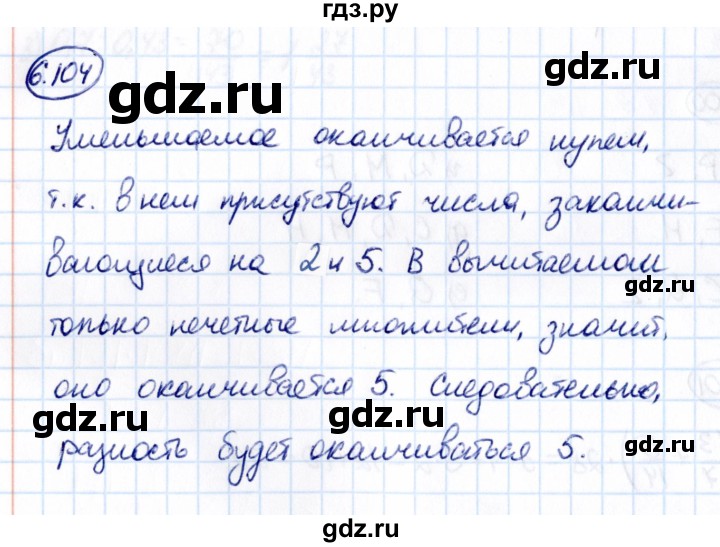 гдз.ру
6.104
gdz.ru
Уменьшаемое оканчивается нулем,
т.к. в нем присутствуют числа, заканчи-
вающиеся на 2 и 5. В вычитаемом
gdz.ru
только нечетные множители, значит,
оно оканчивается 5. Следовательно,
gdz.ru
gdz.ru
разность будет оканчиваться 5.
gdz.ru
gdz.ru